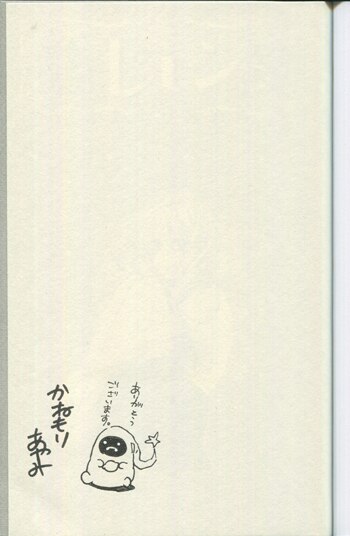 ありがとう
ございます。
かねもり
あやみ